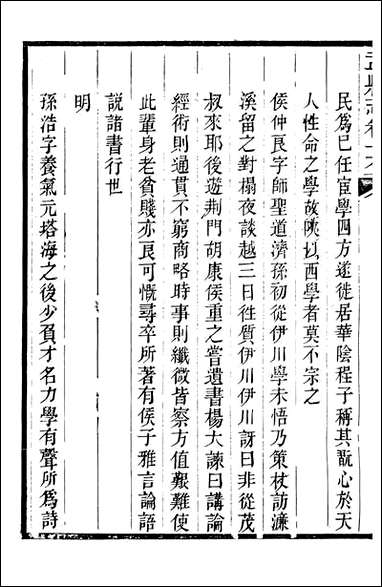 民爲已任宦學四方遂徙居華陰程子稱其翫心於天
人性命之學故陜以西學者莫不宗之
侯仲良字師聖道濟孫初從伊川學未悟乃策杖訪濂
溪留之對榻夜談越三日往質伊川伊川訝曰非從茂
叔來耶後遊荆門胡康侯重之嘗遺書楊大諫曰講論
經術則通貫不窮商略時事則纖微皆察方值艱難使
此輩身老貧賤亦良可慨尋卒所著有侯子雅言論語
説諸書行世
明
孫浩字養氣元塔海之後少負才名力學有聲所爲詩